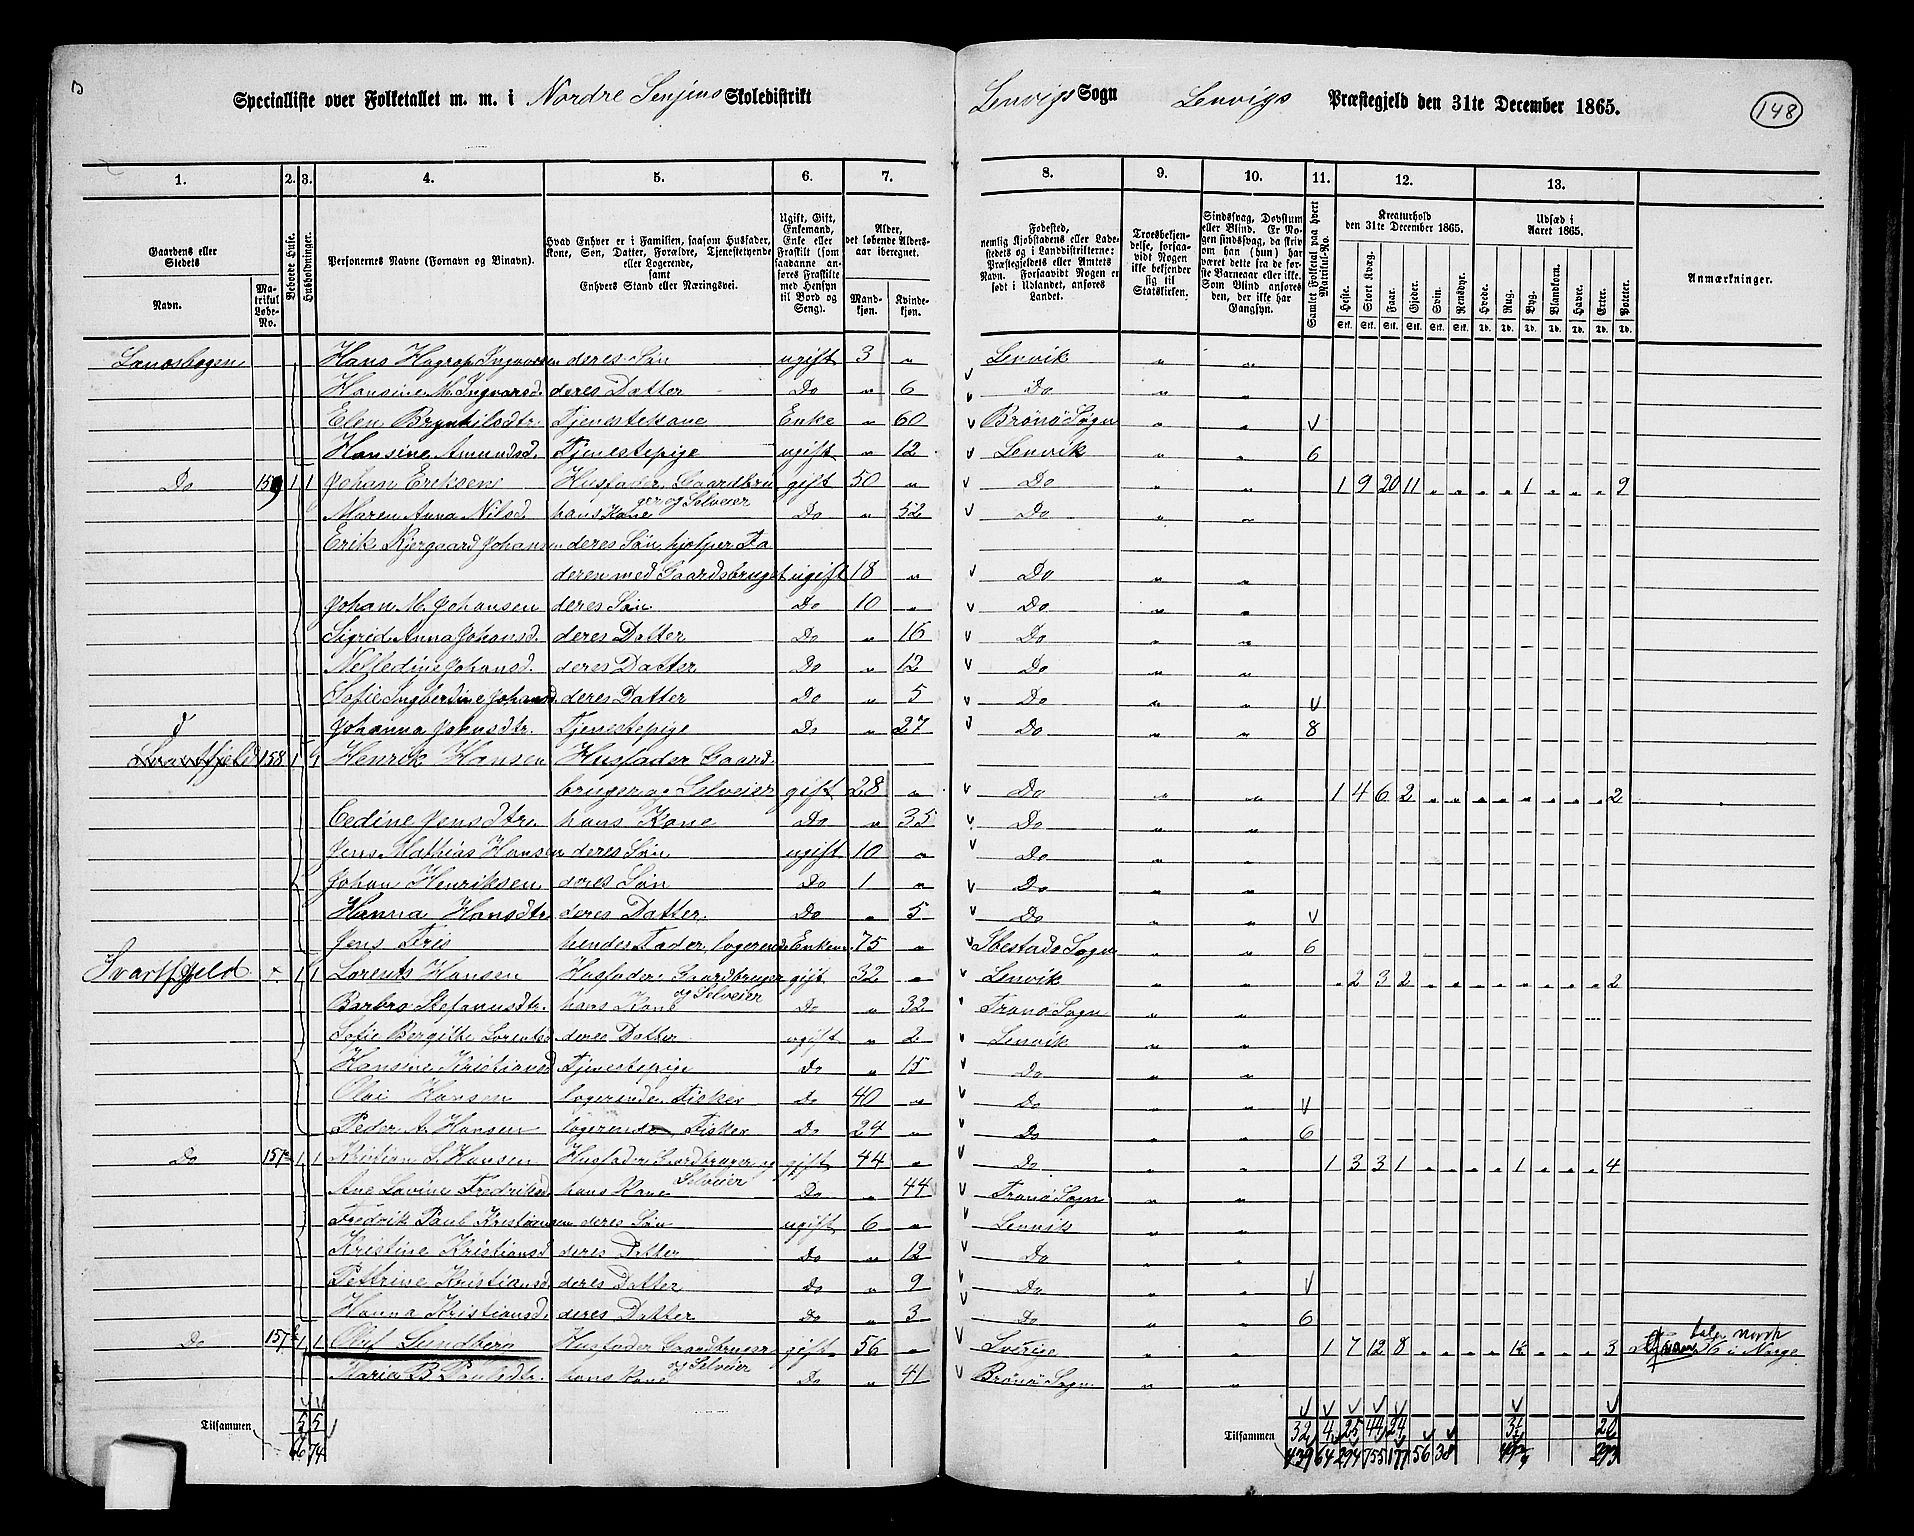 Specialliste over Folketallet m. m. i Nordre Senjens Skoledistrikt Lenvigs Sogn Lenvigs Præstegjeld den 31te December 1865. 148
1. 2. 3. 4. 5. 6. 7. 8. 9. 10. 11. 12. 13.
Gaardens eller Stedets
Navn. Matrikul Løbe-No.
Beboede Huse.
Husholdninger.
Personernes Navne (Fornavn og Tilnavn).
Hvad Enhver er i Familien, saasom Husfader, Kone, Søn, Datter, Forældre, Tjenestetyende eller Logerende, samt Enhvers Stand eller Næringsvei.
Ugift, Gift, Enkemand, Enke eller Fraskilt (som saadanne anføres Fraskilte med Hensyn til Bord og Seng).
Alder, det løbende Alders-aar iberegnet.
Mand-kjøn. Kvinde-kjøn.
Fødested, nemlig Kjøbstadens eller Ladestedets og i Landdistrikterne: Præstegjeldets eller Amtets Navn. Forsaavidt Nogen er født i Udlandet, anføres Landet.
Troesbekjendelse, forsaavidt Nogen ikke bekjender sig til Statskirken.
Sindssvag, Døvstum eller Blind.
Samlet Folketal paa hvert Matrikul-No.
Kreaturhold den 31te December 1865.
Heste. Stort Kvæg. Faar. Gjeder. Svin. Rensdyr.
Udsæd i Aaret 1865.
Hvede. Rug. Byg. Blandkorn. Havre. Erter. Poteter.
Anmærkninger.
Hans Hagrop Ingvarsen deres Søn ugift 3 " Lenvik " "
Hansine M. Ingvarsd. deres Datter Do " 6 Do " "
Elen Bryntilsdtr. Tjenestekone Enke " 60 Brønø Sogn " "
Hansine Amundsd. Tjenestepige ugift " 12 Lenvik " " 6
Do 159 1 1 Johan Eriksen Husfader, Gaardbru gift 50 " Do " " 1 9 20 11 " " " " 1 " " " 9
ger og Selveier
Maren Anna Nilsd. hans Kone Do " 52 Do " "
Erik Kjergaard Johansen deres Søn, hjelper Fa
deren med Gaardsbruget ugift 18 " Do " "
Johan M. Johansen deres Søn Do 10 " Do " "
Sigrid Anna Johansd. deres Datter Do " 16 Do " "
Nelledine Johansd. deres Datter Do " 12 Do " "
Sofie Ingberdine Johansd. deres Datter Do " 5 Do " "
Johanna Johnsdtr. Tjenestepige Do " 27 Do " " 8
Svartfjeld 158 1 1 Henrik Hansen Husfader Gaard
bruger og Selveier gift 28 " Do " " 1 4 6 2 " " " " " " " " 2
Cedine Jensdtr. hans Kone Do " 35 Do " "
Jens Mathias Hansen deres Søn ugift 10 " Do " "
Johan Henriksen deres Søn Do 1 " Do " "
Hanna Hansdtr. deres Datter. Do " 5 Do " "
Jens Friis hendes Fader, logerende Enkem. 75 " Ibestads Sogn " " 6
Svartfjeld 1 1 Lorents Hansen Husfader, Gaardbruger gift 32 " Lenvik " " " 2 3 2 " " " " " " " " 2
og Selveier
Barbro Stefanusdtr. hans Kone Do " 32 Tranø Sogn " "
Sofie Bergitte Lorentsd. deres Datter ugift " 2 Lenvik " "
Hansine Kristiansd. Tjenestepige Do " 15 Do " "
Olai Hansen logerende, Fisker Do 40 " Do " "
Peder A. Hansen logerende, Fisker Do 24 " Do " " 6
Do 157 1 1 Kristian L. Hansen Husfader Gaardbruger og gift 44 " Do " " 1 3 3 1 " " " " 1 " " " 4
Selveier
Ane Lovine Fredriksd. hans Kone Do " 44 Tranø Sogn " "
Fredrik Paul Kristiansen deres Søn ugift 6 " Lenvik " "
Kristine Kristiansd. deres Datter Do " 12 Do " "
Pettrine Kristiansd. deres Datter Do " 9 Do " "
Hanna Kristiansd. deres Datter Do " 3 Do " " 6
Do 157 1 1 Olof Sundberg Husfader Gaardbruger gift 56 " Sverige " " 1 7 12 8 " " " " " " " 3 taler norsk
og Selveier i Norge
Maria B. Paulsdtr. hans Kone Do " 41 Brønø Sogn " "
Tilsammen 5 5 Tilsammen 32 4 25 44 24
66 74 439 64 294 755 177 56 38 293